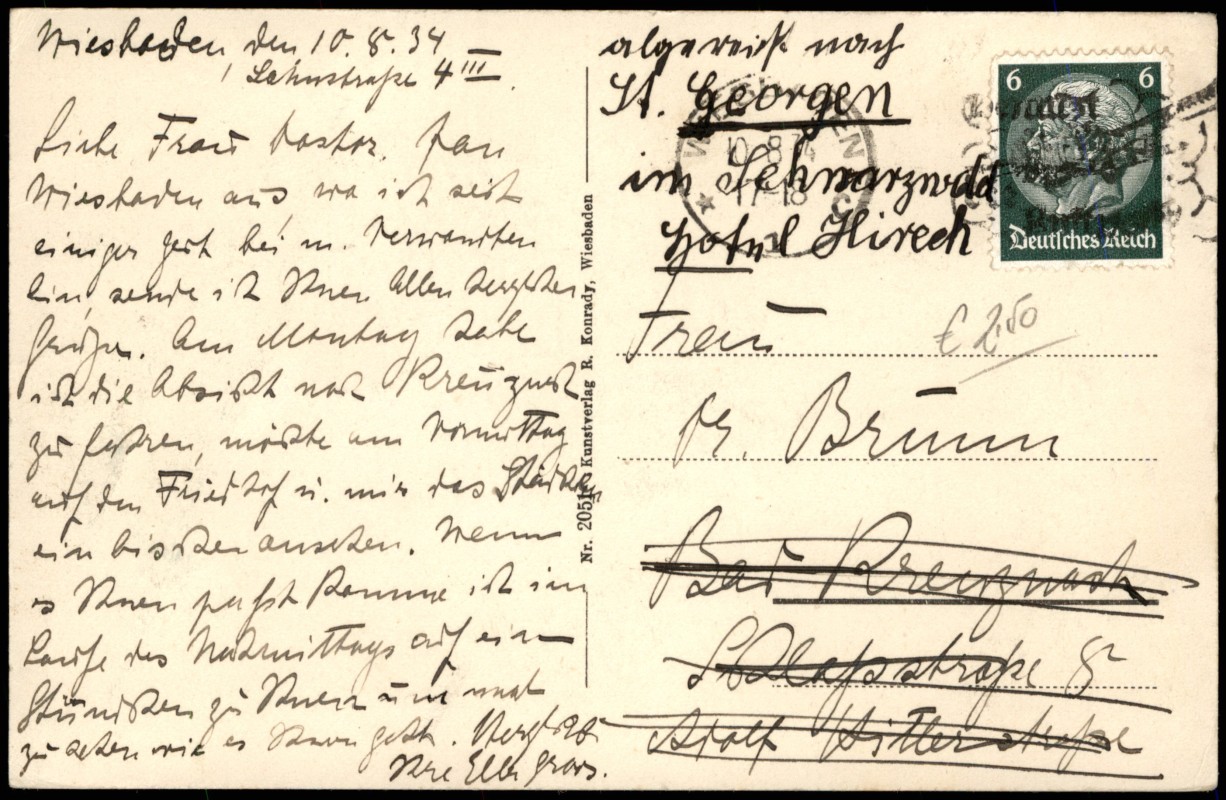 Wiesbaden, den 10.8.34
Lahnstraße 4 III.
Liebe Frau Pastor. Von
Wiesbaden aus, wo ich seit
einiger Zeit bei m. Verwandten
bin, sende ich Ihnen Allen herzlichen
Grüße. Am Montag habe
ich die Absicht nach Kreuznach
zu fahren, möchte am Vormittag
auf den Friedhof u. mir das Städtchen
ein bisschen ansehen. Wenn
es Ihnen paßt komme ich im
Laufe des Nachmittags auf ein
Stündchen zu Ihnen um mal
zu sehen wie es Ihnen geht.
Ihre Elli
Nr. 205 Kunstverlag R. Konrady, Wiesbaden
abgereist nach
St. Georgen
im Schwarzwald
Hotel Hirsch
Frau
Brunn
Bad Kreuznach
Schloßstraße 8
Adolf Hitlerstraße
10.8.34
17-18
6 6
Deutsches Reich
€ 2,50